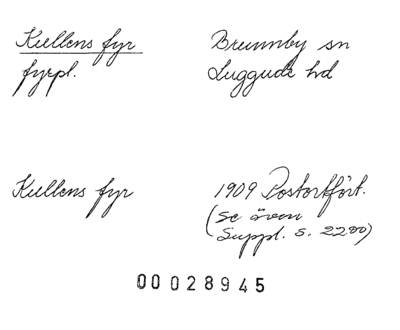 Kullens fyr
fyrpl.
Brunnby sn
Luggude hd
Kullens fyr
1909 Postortfört.
(Se även
Suppl. s. 2200)
00028945